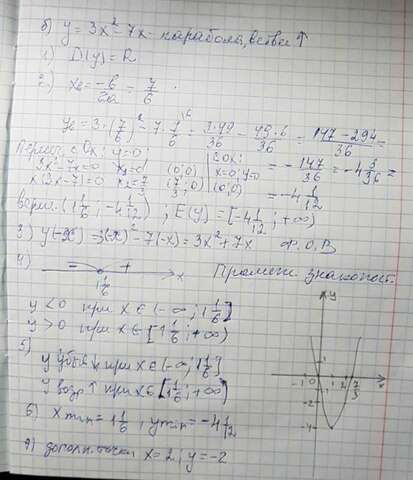 б) y = 3x² - 7x - парабола, ветви ↑
1) D(y) = R
2) x₀ = -b/2a = 7/6
y₀ = 3·(7/6)² - 7·7/6 = 3·49/36 - 49·6/36 = 147-294/36 =
= -147/36 = -4 3/36 =
= -4 1/12
Перес. с Ox: y=0
3x²-7x=0 x₁=0 (0;0)
x(3x-7)=0 x₂=7/3 (7/3;0)
с Oy:
x=0; y=0
(0;0)
верш. (1 1/6; -4 1/12); E(y) = [-4 1/12; +∞)
3) y(-x) = 3(-x)² - 7(-x) = 3x² + 7x Ф.О.В
4) - + x
1 1/6
Промеж. знакопост.
y < 0 при x ∈ (-∞; 1 1/6]
y > 0 при x ∈ [1 1/6; +∞)
5)
y убыв ↓ при x ∈ (-∞; 1 1/6]
y возр ↑ при x ∈ [1 1/6; +∞)
6) x min = 1 1/6, y min = -4 1/12
7) дополн. точки x = 2; y = -2
y
1
-1 0 1 2 7/3 x
-2
-4